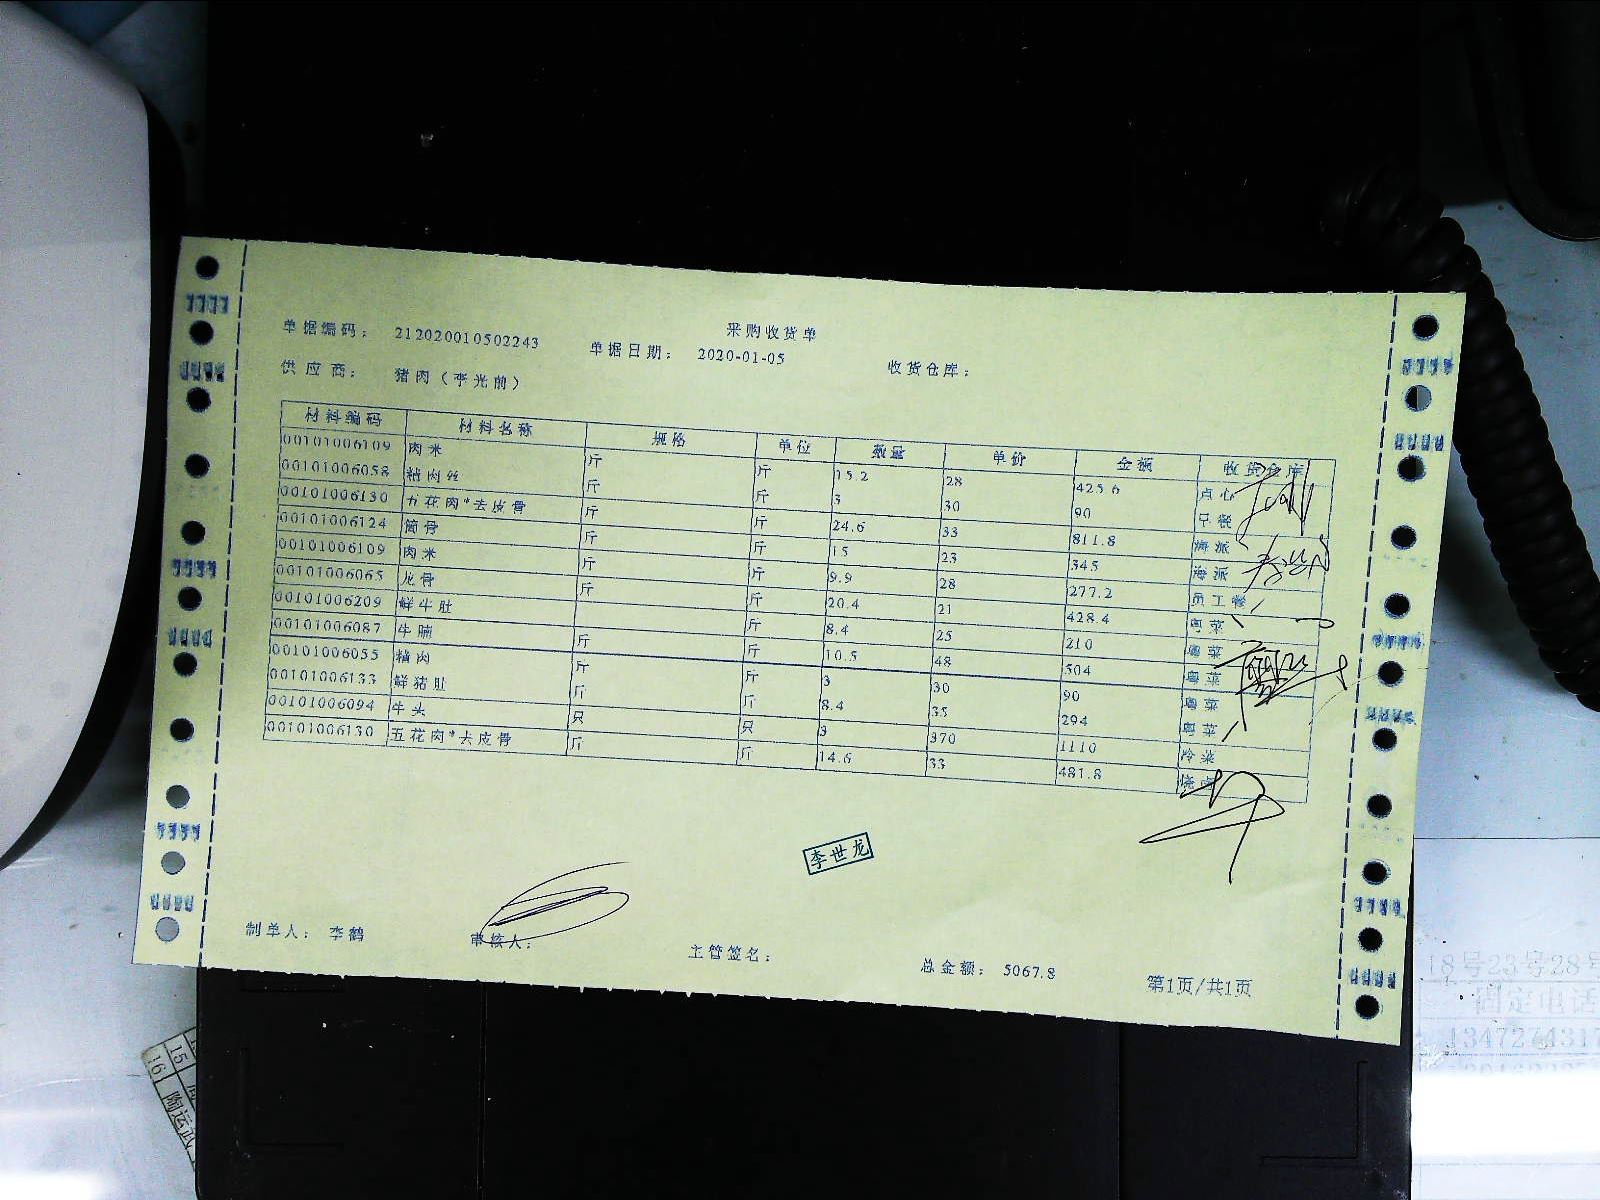 采购收货单
单据编码： 212020010502243 单据日期： 2020-01-05 收货仓库：
供应商： 猪肉（李光前）
材料编码 材料名称 规格 单位 数量 单价 金额 收货仓库
00101006109 肉米 斤 斤 15.2 28 425.6 点心
00101006058 精肉丝 斤 斤 3 30 90 早餐
00101006130 五花肉*去皮骨 斤 斤 24.6 33 811.8 海派
00101006124 筒骨 斤 斤 15 23 345 海派
00101006109 肉米 斤 斤 9.9 28 277.2 员工餐
00101006065 龙骨 斤 斤 20.4 21 428.4 粤菜
00101006209 鲜牛肚 斤 8.4 25 210 粤菜
00101006087 牛腩 斤 斤 10.5 48 504 粤菜
00101006055 精肉 斤 斤 3 30 90 粤菜
00101006133 鲜猪肚 斤 斤 8.4 35 294 粤菜
00101006094 牛头 只 只 3 370 1110 冷菜
00101006130 五花肉*去皮骨 斤 斤 14.6 33 481.8
李世龙
制单人： 李鹤 审核人： 主管签名： 总金额： 5067.8 第1页/共1页
18号23号28号
固定电话
1347274317
15
16 陶运武